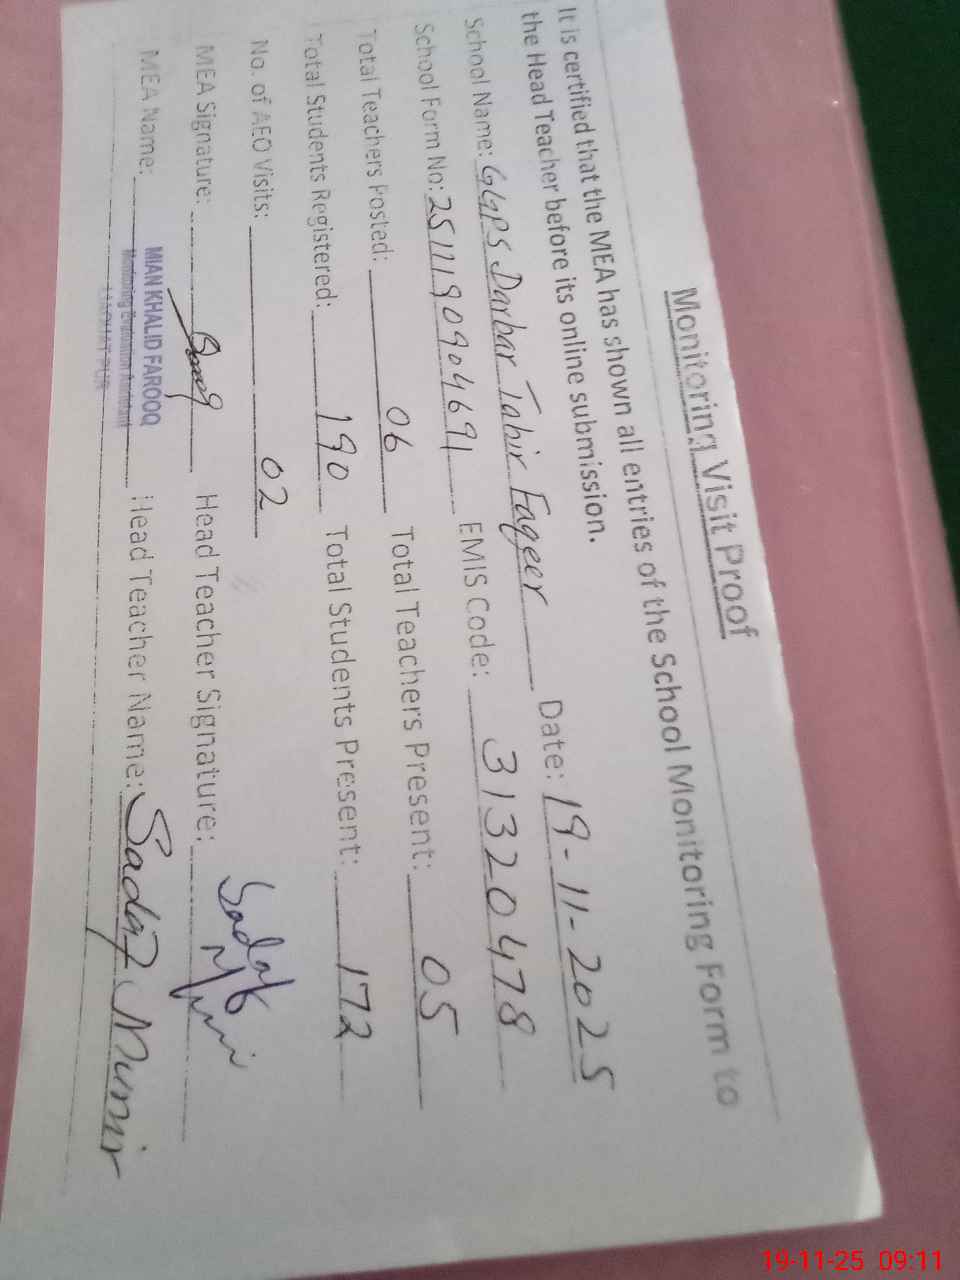 Monitoring Visit Proof
It is certified that the MEA has shown all entries of the School Monitoring Form to
the Head Teacher before its online submission.
School Name: GGPS Darbar Tahir Faqeer Date: 19-11-2025
School Form No: 2511190904691 EMIS Code: 31320478
Total Teachers Posted: 06 Total Teachers Present: 05
Total Students Registered: 190 Total Students Present: 172
No. of AEO Visits: 02
MEA Signature: Head Teacher Signature: Sadaf Munir
MEA Name: MIAN KHALID FAROOQ Head Teacher Name: Sadaf Munir
Monitoring Evaluation Assistant
LIAQUAT PUR
19-11-25 09:11